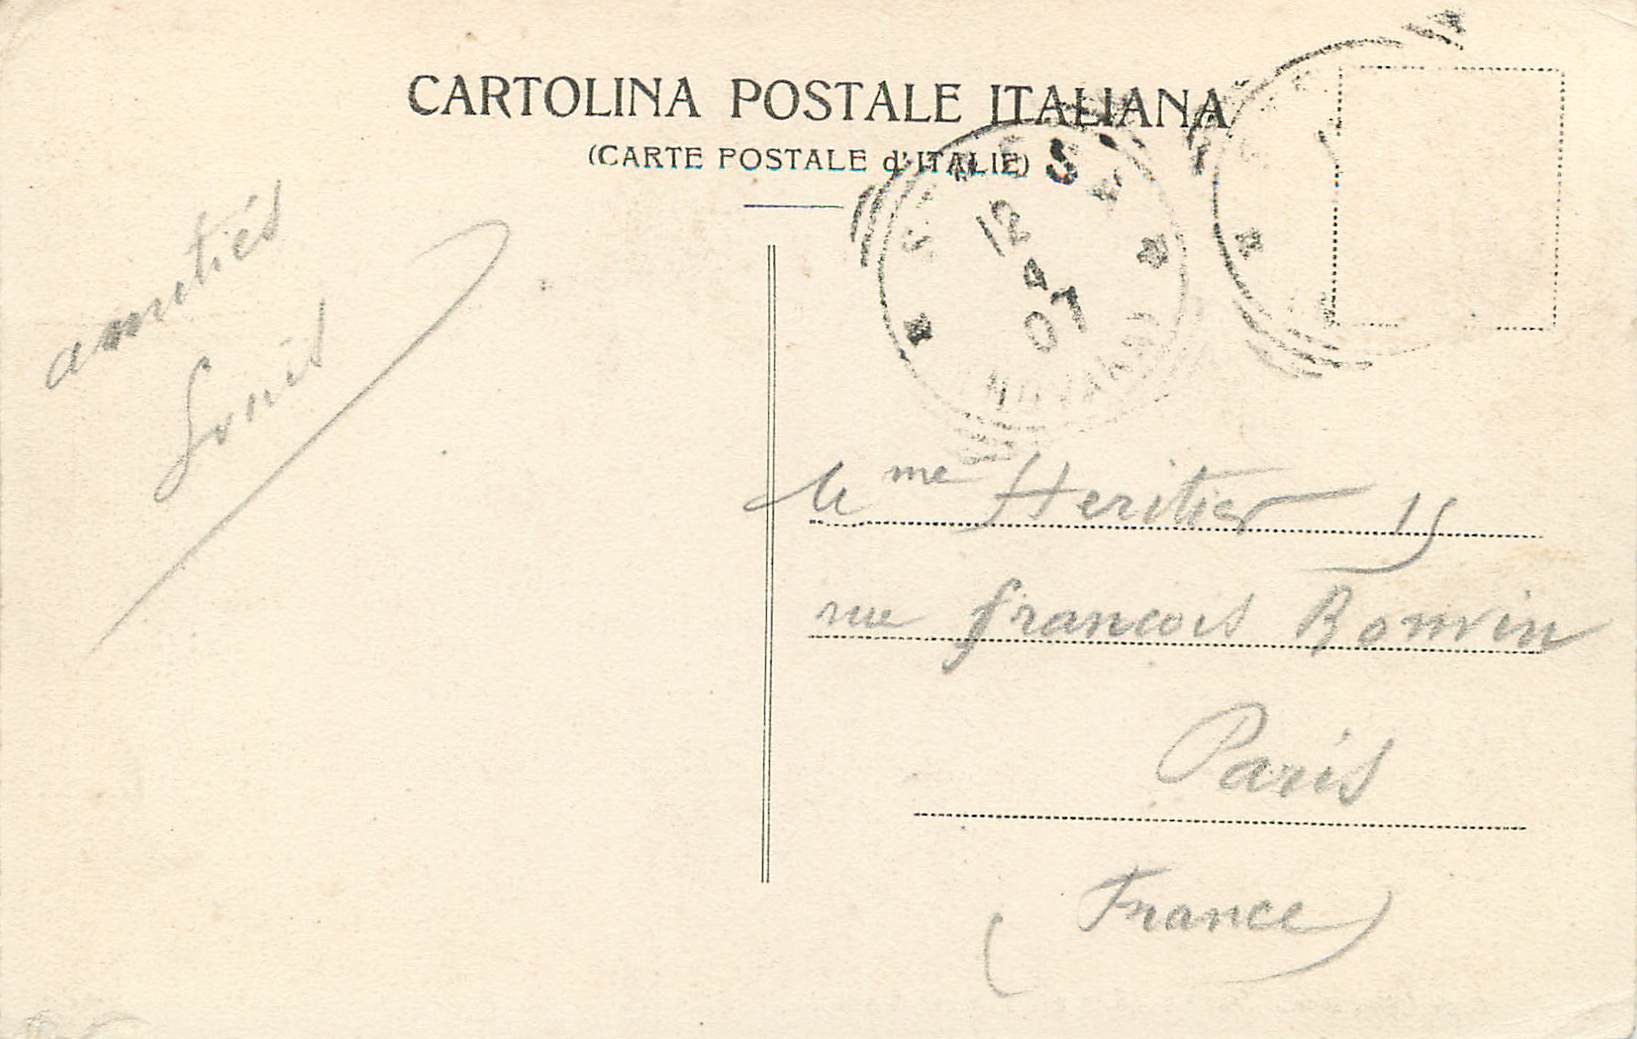 CARTOLINA POSTALE ITALIANA
(CARTE POSTALE d'ITALIE)
12
4
07
amitiés
Mme Heritier 15
rue francois Bonvin
Paris
(France)